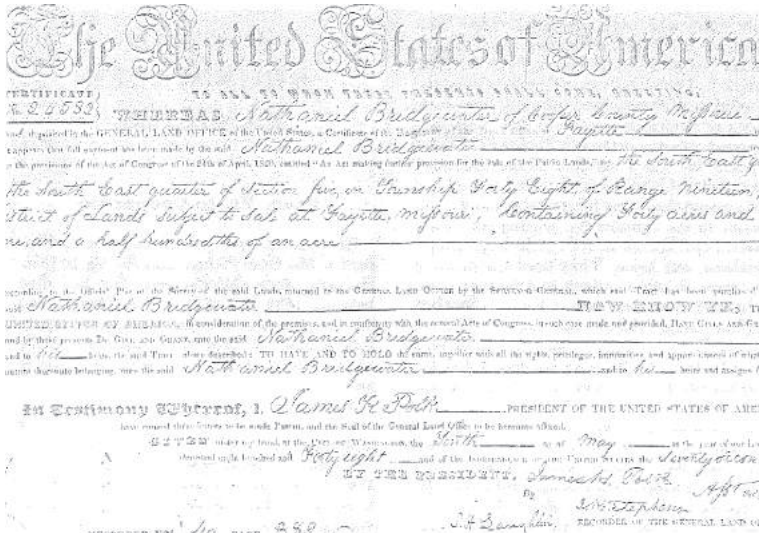 The United States of America
CERTIFICATE
No. 24533
TO ALL TO WHOM THESE PRESENTS SHALL COME, GREETING:
WHEREAS Nathaniel Bridgewater of Cooper County Missouri
deposited in the GENERAL LAND OFFICE of the United States, a Certificate of the Register of the Fayette
it appears that full payment has been made by the said Nathaniel Bridgewater
the provisions of the Act of Congress of the 24th of April, 1820, entitled "An Act making further provision for the sale of the Public Lands," for the South East
the South East quarter of Section five, in Township Forty Eight, of Range Nineteen,
District of Lands subject to Sale at Fayette, Missouri, Containing Forty acres and
and a half hundredths of an acre
according to the Official Plat of the Survey of the said Lands, returned to the General Land Office by the Surveyor General, which said Tract has been purchased
said Nathaniel Bridgewater NOW KNOW YE, T
UNITED STATES OF AMERICA, in consideration of the premises, and in conformity with the several Acts of Congress, in such case made and provided, HAVE GIVEN AND GR
and by these presents DO GIVE AND GRANT, unto the said Nathaniel Bridgewater
and to his heirs, the said Tract above described: TO HAVE AND TO HOLD the same, together with all the rights, privileges, immunities, and appurtenances of
nature thereunto belonging, unto the said Nathaniel Bridgewater and to his heirs and assigns
In Testimony Whereof, I, James K Polk PRESIDENT OF THE UNITED STATES OF AME
have caused these letters to be made Patent, and the Seal of the General Land Office to be hereunto affixed.
GIVEN under my hand, at the City of Washington, the Tenth day of May in the year of our
thousand eight hundred and Forty eight and of the Independence of the United States the Seventy second
BY THE PRESIDENT, James K. Polk
By J. K. Stephens
S. H. Laughlin, RECORDER OF THE GENERAL LAND O